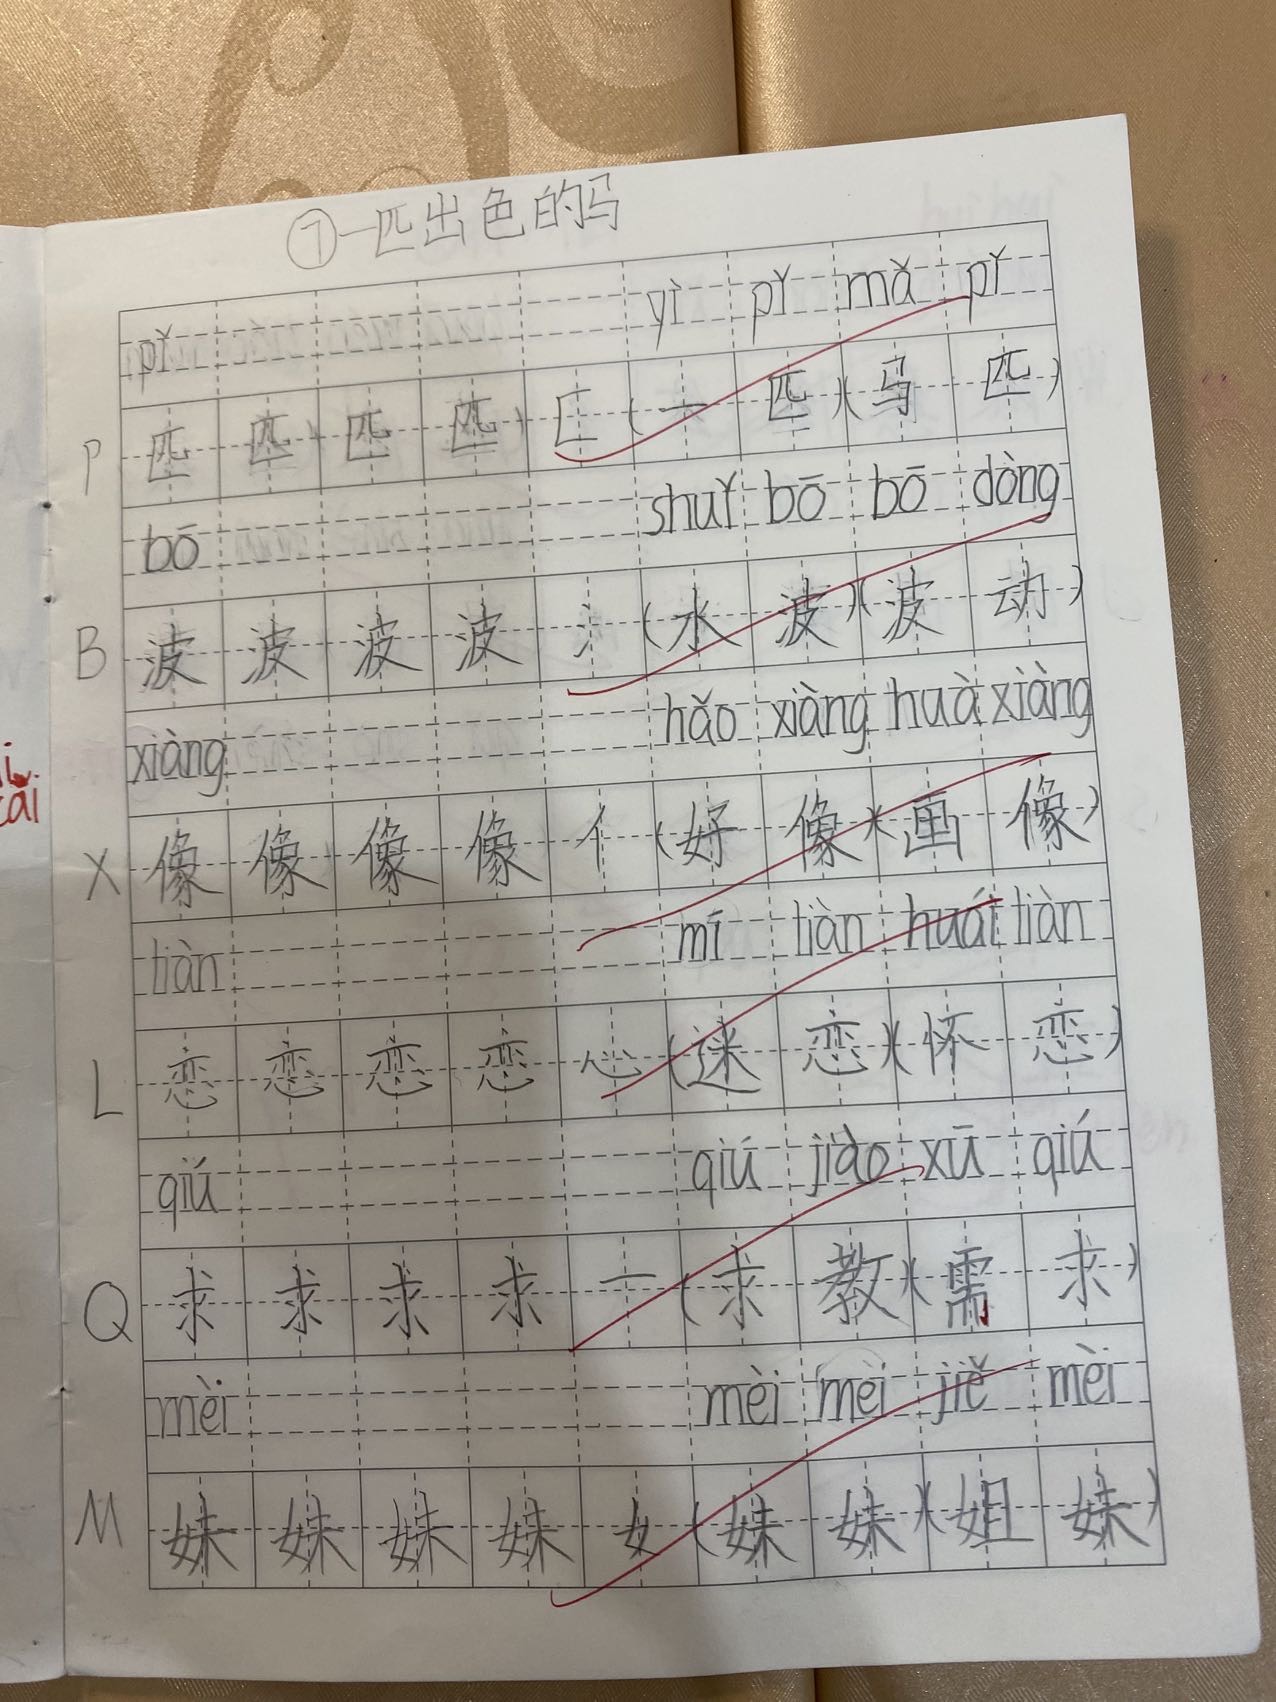 ⑦一匹出色的马
pǐ yì pǐ mǎ pǐ
P 匹 匹 匹 匹 匚 (一 匹)(马 匹)
bō shuǐ bō bō dòng
B 波 波 波 波 氵 (水 波)(波 动)
xiàng hǎo xiàng huà xiàng
X 像 像 像 像 亻 (好 像)(画 像)
liàn mí liàn huái liàn
L 恋 恋 恋 恋 心 (迷 恋)(怀 恋)
qiú qiú jiào xū qiú
Q 求 求 求 求 一 (求 教)(需 求)
mèi mèi mèi jiě mèi
M 妹 妹 妹 妹 女 (妹 妹)(姐 妹)